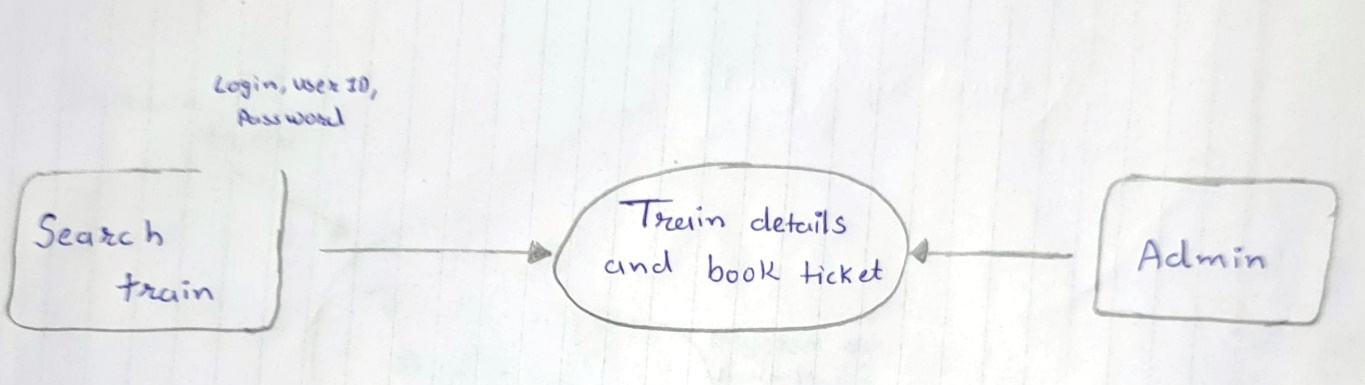 Login, user ID,
Password
Search
train
Train details
and book ticket
Admin